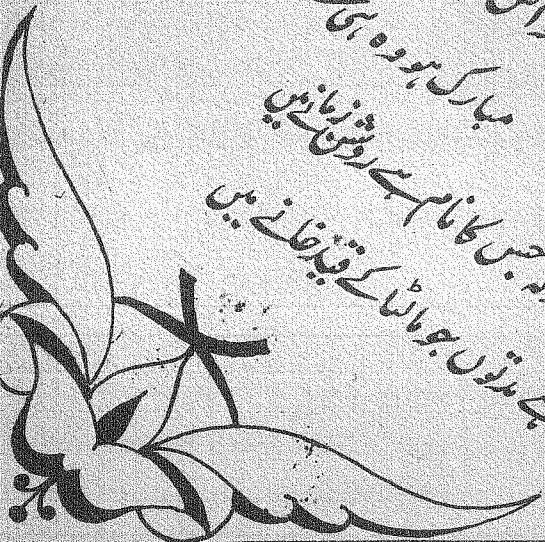 مبارک ہو وہ ہی
جس کا نام ہے روشن زمانے میں
مدتوں جو مالٹا کے قید خانے میں